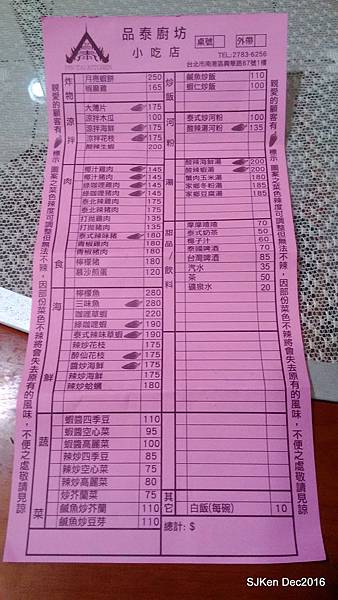 品泰廚坊
小吃店
桌號
外帶
TEL:2783-6256
台北市南港區興華路67號1樓
親愛的顧客有 標示圖案之菜色辣度可調整但無法不辣,因部份菜色不辣將會失去原有的風味,不便之處敬請見諒
炸物
月亮蝦餅 250
蝦麻醬 165
涼拌
大薄片 175
涼拌木瓜 100
涼拌海鮮 175
涼拌花枝 175
酸辣生蝦 200
肉食
椰汁雞肉 145
椰汁豬肉 145
綠咖哩雞肉 145
綠咖哩豬肉 145
泰北辣雞肉 175
泰北辣豬肉 175
打拋雞肉 175
打拋豬肉 175
泰式辣味豬 180
青椒雞肉 180
青椒豬肉 180
檸檬豬 180
慕沙煎蛋 120
海鮮
檸檬魚 280
三味魚 280
咖哩草蝦 220
綠咖哩蝦 190
泰式辣味草蝦 190
辣炒花枝 175
醉仙花枝 175
醬炒海鮮 175
辣炒海鮮 175
辣炒蛤蠣 180
蔬菜
蝦醬四季豆 110
蝦醬空心菜 95
蝦醬高麗菜 100
辣炒四季豆 85
辣炒空心菜 75
辣炒高麗菜 80
炒芥蘭菜 75
鹹魚炒芥蘭 110
鹹魚炒豆芽 110
炒飯
鹹魚炒飯 110
蝦仁炒飯 100
河粉
泰式炒河粉 110
酸辣湯河粉 135
湯
酸辣海鮮湯 200
酸辣蝦湯 200
蟹肉玉米湯 180
家鄉冬粉湯 180
家鄉豆腐湯 180
甜品/飲料
摩摩喳喳 70
泰式奶茶 50
椰子汁 60
泰國啤酒 70
台灣啤酒 85
汽水 35
茶 50
礦泉水 20
其它
白飯(每碗) 10
總計:$
SJKen Dec2016